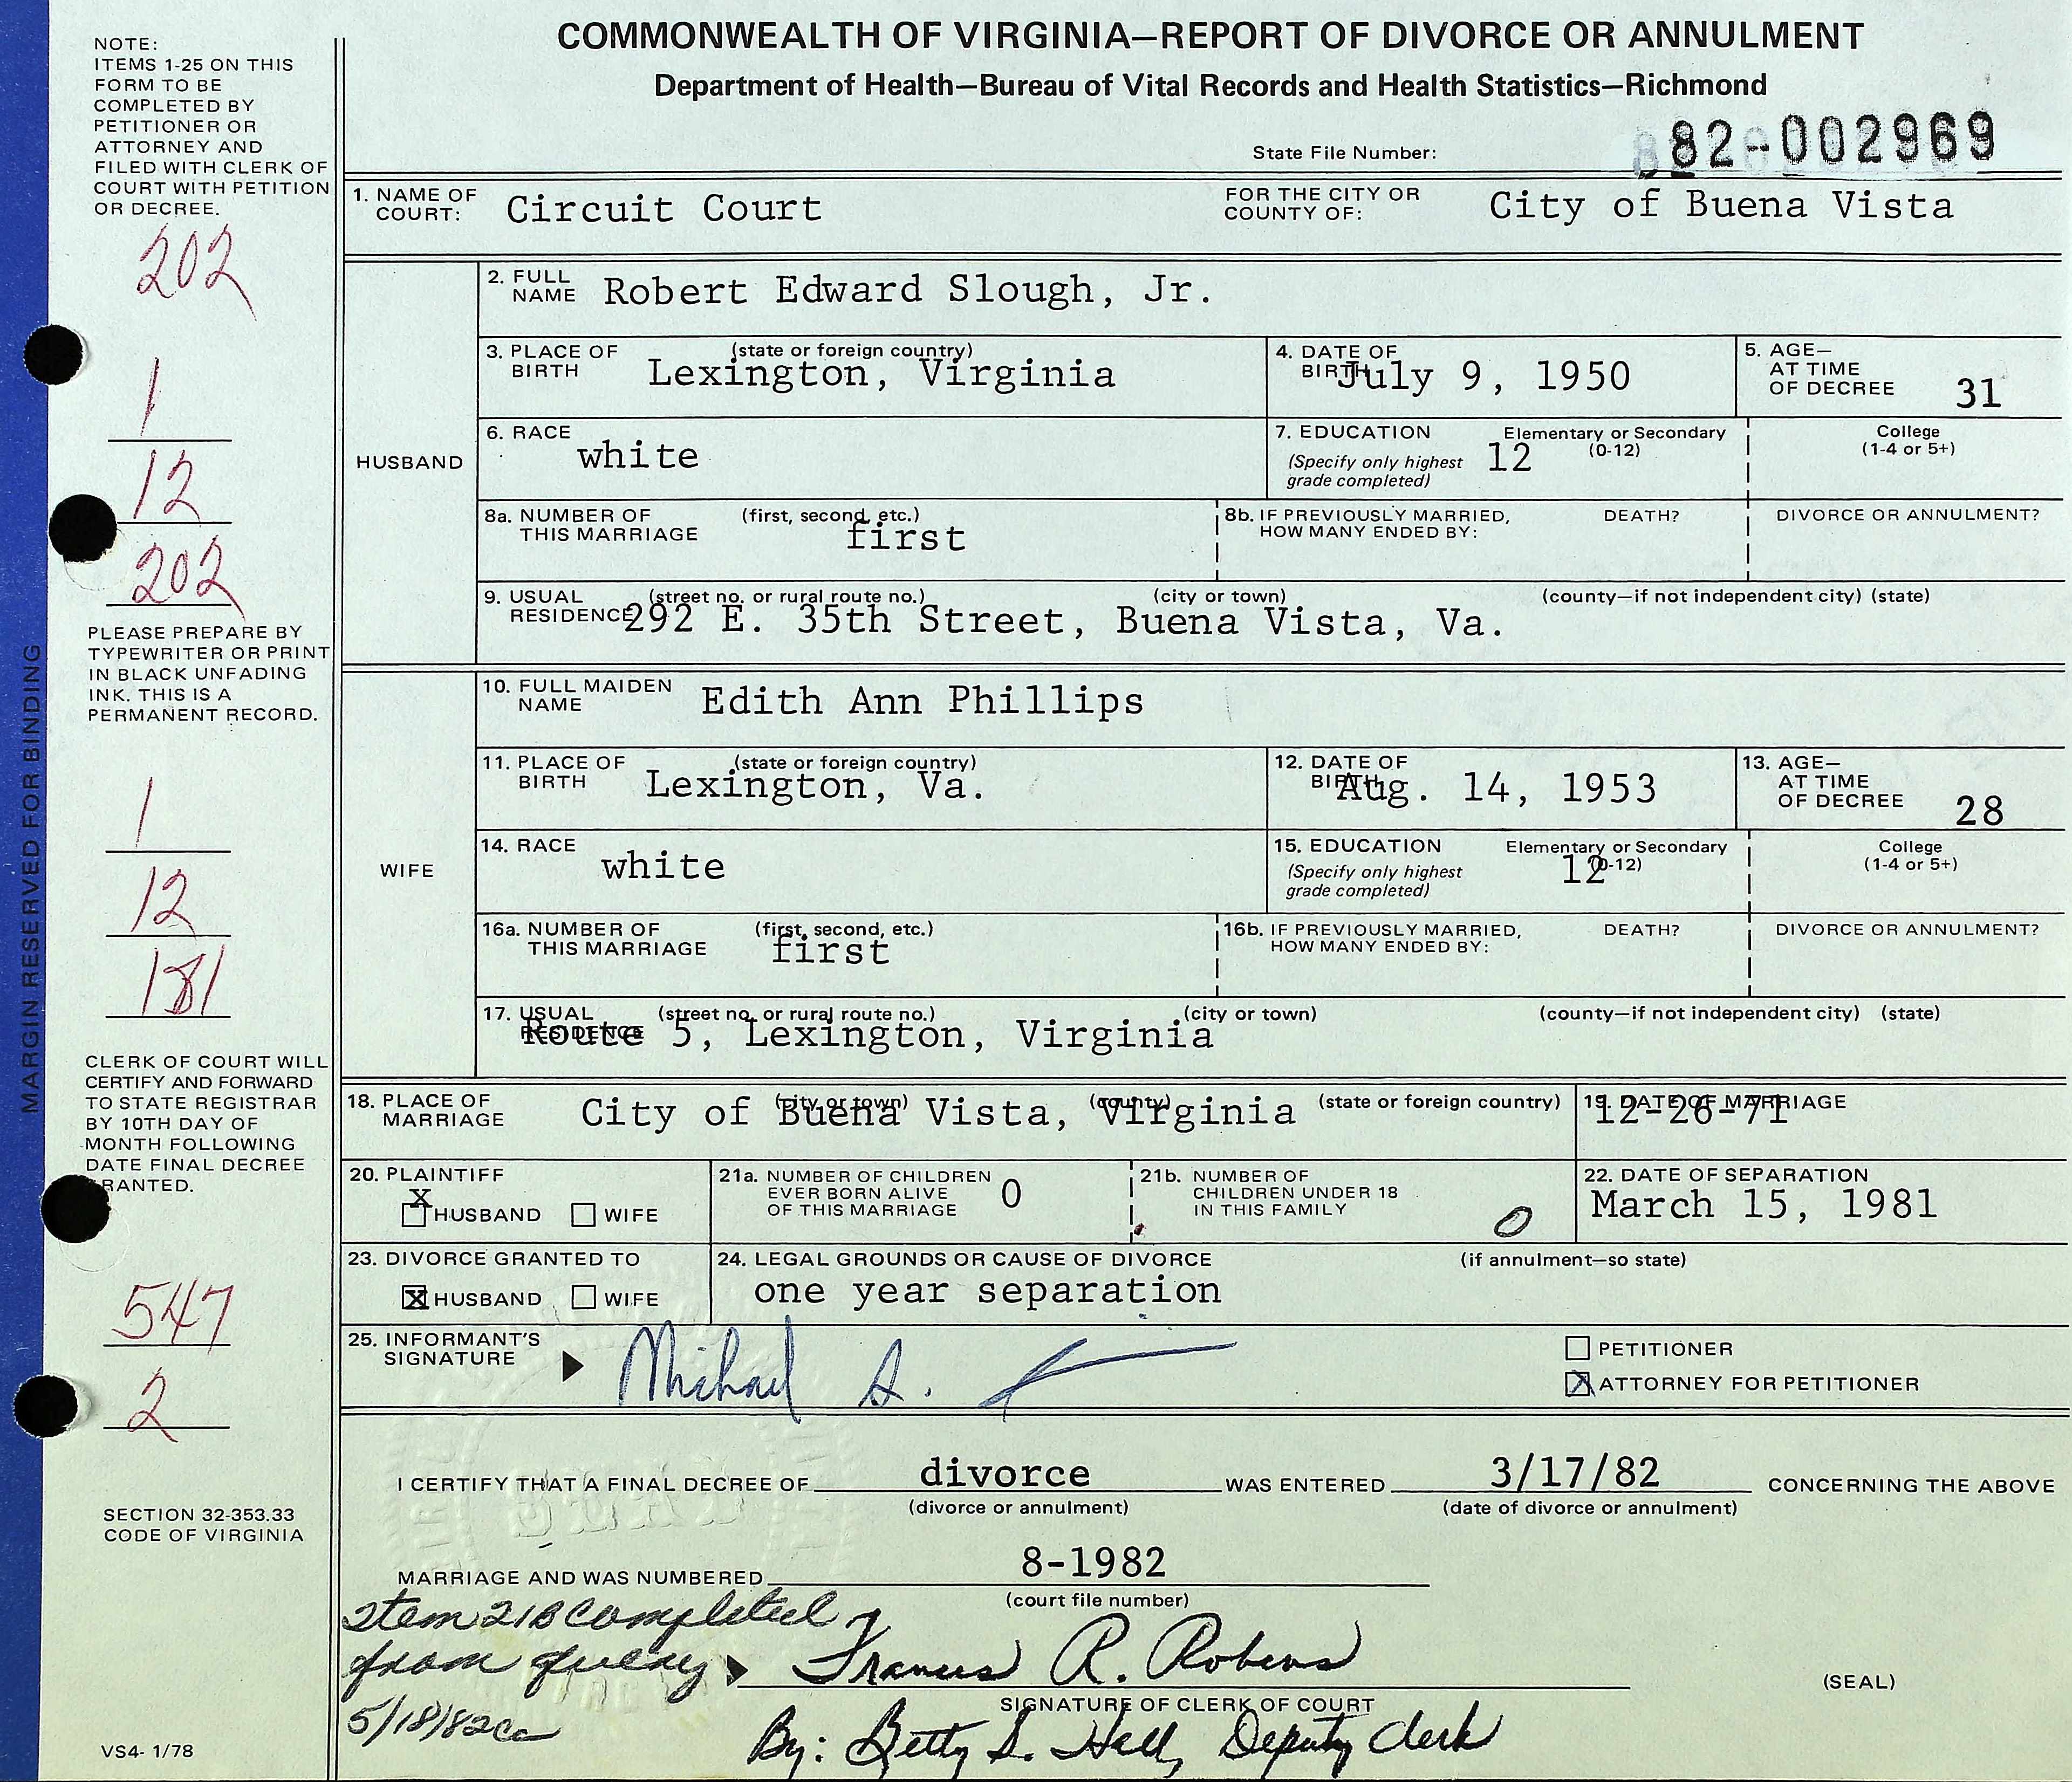 COMMONWEALTH OF VIRGINIA—REPORT OF DIVORCE OR ANNULMENT
Department of Health—Bureau of Vital Records and Health Statistics—Richmond
State File Number: 82-002969
NOTE:
ITEMS 1-25 ON THIS
FORM TO BE
COMPLETED BY
PETITIONER OR
ATTORNEY AND
FILED WITH CLERK OF
COURT WITH PETITION
OR DECREE.
202
1
12
202
PLEASE PREPARE BY
TYPEWRITER OR PRINT
IN BLACK UNFADING
INK. THIS IS A
PERMANENT RECORD.
1
12
181
CLERK OF COURT WILL
CERTIFY AND FORWARD
TO STATE REGISTRAR
BY 10TH DAY OF
MONTH FOLLOWING
DATE FINAL DECREE
GRANTED.
547
2
SECTION 32-353.33
CODE OF VIRGINIA
VS4- 1/78
MARGIN RESERVED FOR BINDING
1. NAME OF COURT: Circuit Court FOR THE CITY OR COUNTY OF: City of Buena Vista
HUSBAND
2. FULL NAME Robert Edward Slough, Jr.
3. PLACE OF BIRTH (state or foreign country) Lexington, Virginia
4. DATE OF BIRTH July 9, 1950
5. AGE— AT TIME OF DECREE 31
6. RACE white
7. EDUCATION (Specify only highest grade completed) Elementary or Secondary (0-12) 12 College (1-4 or 5+)
8a. NUMBER OF THIS MARRIAGE (first, second, etc.) first
8b. IF PREVIOUSLY MARRIED, HOW MANY ENDED BY: DEATH? DIVORCE OR ANNULMENT?
9. USUAL RESIDENCE (street no. or rural route no.) (city or town) (county—if not independent city) (state)
292 E. 35th Street, Buena Vista, Va.
WIFE
10. FULL MAIDEN NAME Edith Ann Phillips
11. PLACE OF BIRTH (state or foreign country) Lexington, Va.
12. DATE OF BIRTH Aug. 14, 1953
13. AGE— AT TIME OF DECREE 28
14. RACE white
15. EDUCATION (Specify only highest grade completed) Elementary or Secondary (0-12) 12 College (1-4 or 5+)
16a. NUMBER OF THIS MARRIAGE (first, second, etc.) first
16b. IF PREVIOUSLY MARRIED, HOW MANY ENDED BY: DEATH? DIVORCE OR ANNULMENT?
17. USUAL RESIDENCE (street no. or rural route no.) (city or town) (county—if not independent city) (state)
Route 5, Lexington, Virginia
18. PLACE OF MARRIAGE (city or town) (county) (state or foreign country) City of Buena Vista, Virginia
19. DATE OF MARRIAGE 12-26-71
20. PLAINTIFF X HUSBAND WIFE
21a. NUMBER OF CHILDREN EVER BORN ALIVE OF THIS MARRIAGE 0
21b. NUMBER OF CHILDREN UNDER 18 IN THIS FAMILY 0
22. DATE OF SEPARATION March 15, 1981
23. DIVORCE GRANTED TO X HUSBAND WIFE
24. LEGAL GROUNDS OR CAUSE OF DIVORCE (if annulment—so state)
one year separation
25. INFORMANT'S SIGNATURE Michael A.
PETITIONER
X ATTORNEY FOR PETITIONER
I CERTIFY THAT A FINAL DECREE OF divorce WAS ENTERED 3/17/82 CONCERNING THE ABOVE
(divorce or annulment) (date of divorce or annulment)
MARRIAGE AND WAS NUMBERED 8-1982
(court file number)
Item 21B Completed
from query
5/18/82
Frances R. Robens
SIGNATURE OF CLERK OF COURT
(SEAL)
By: Betty S. Hall, Deputy Clerk